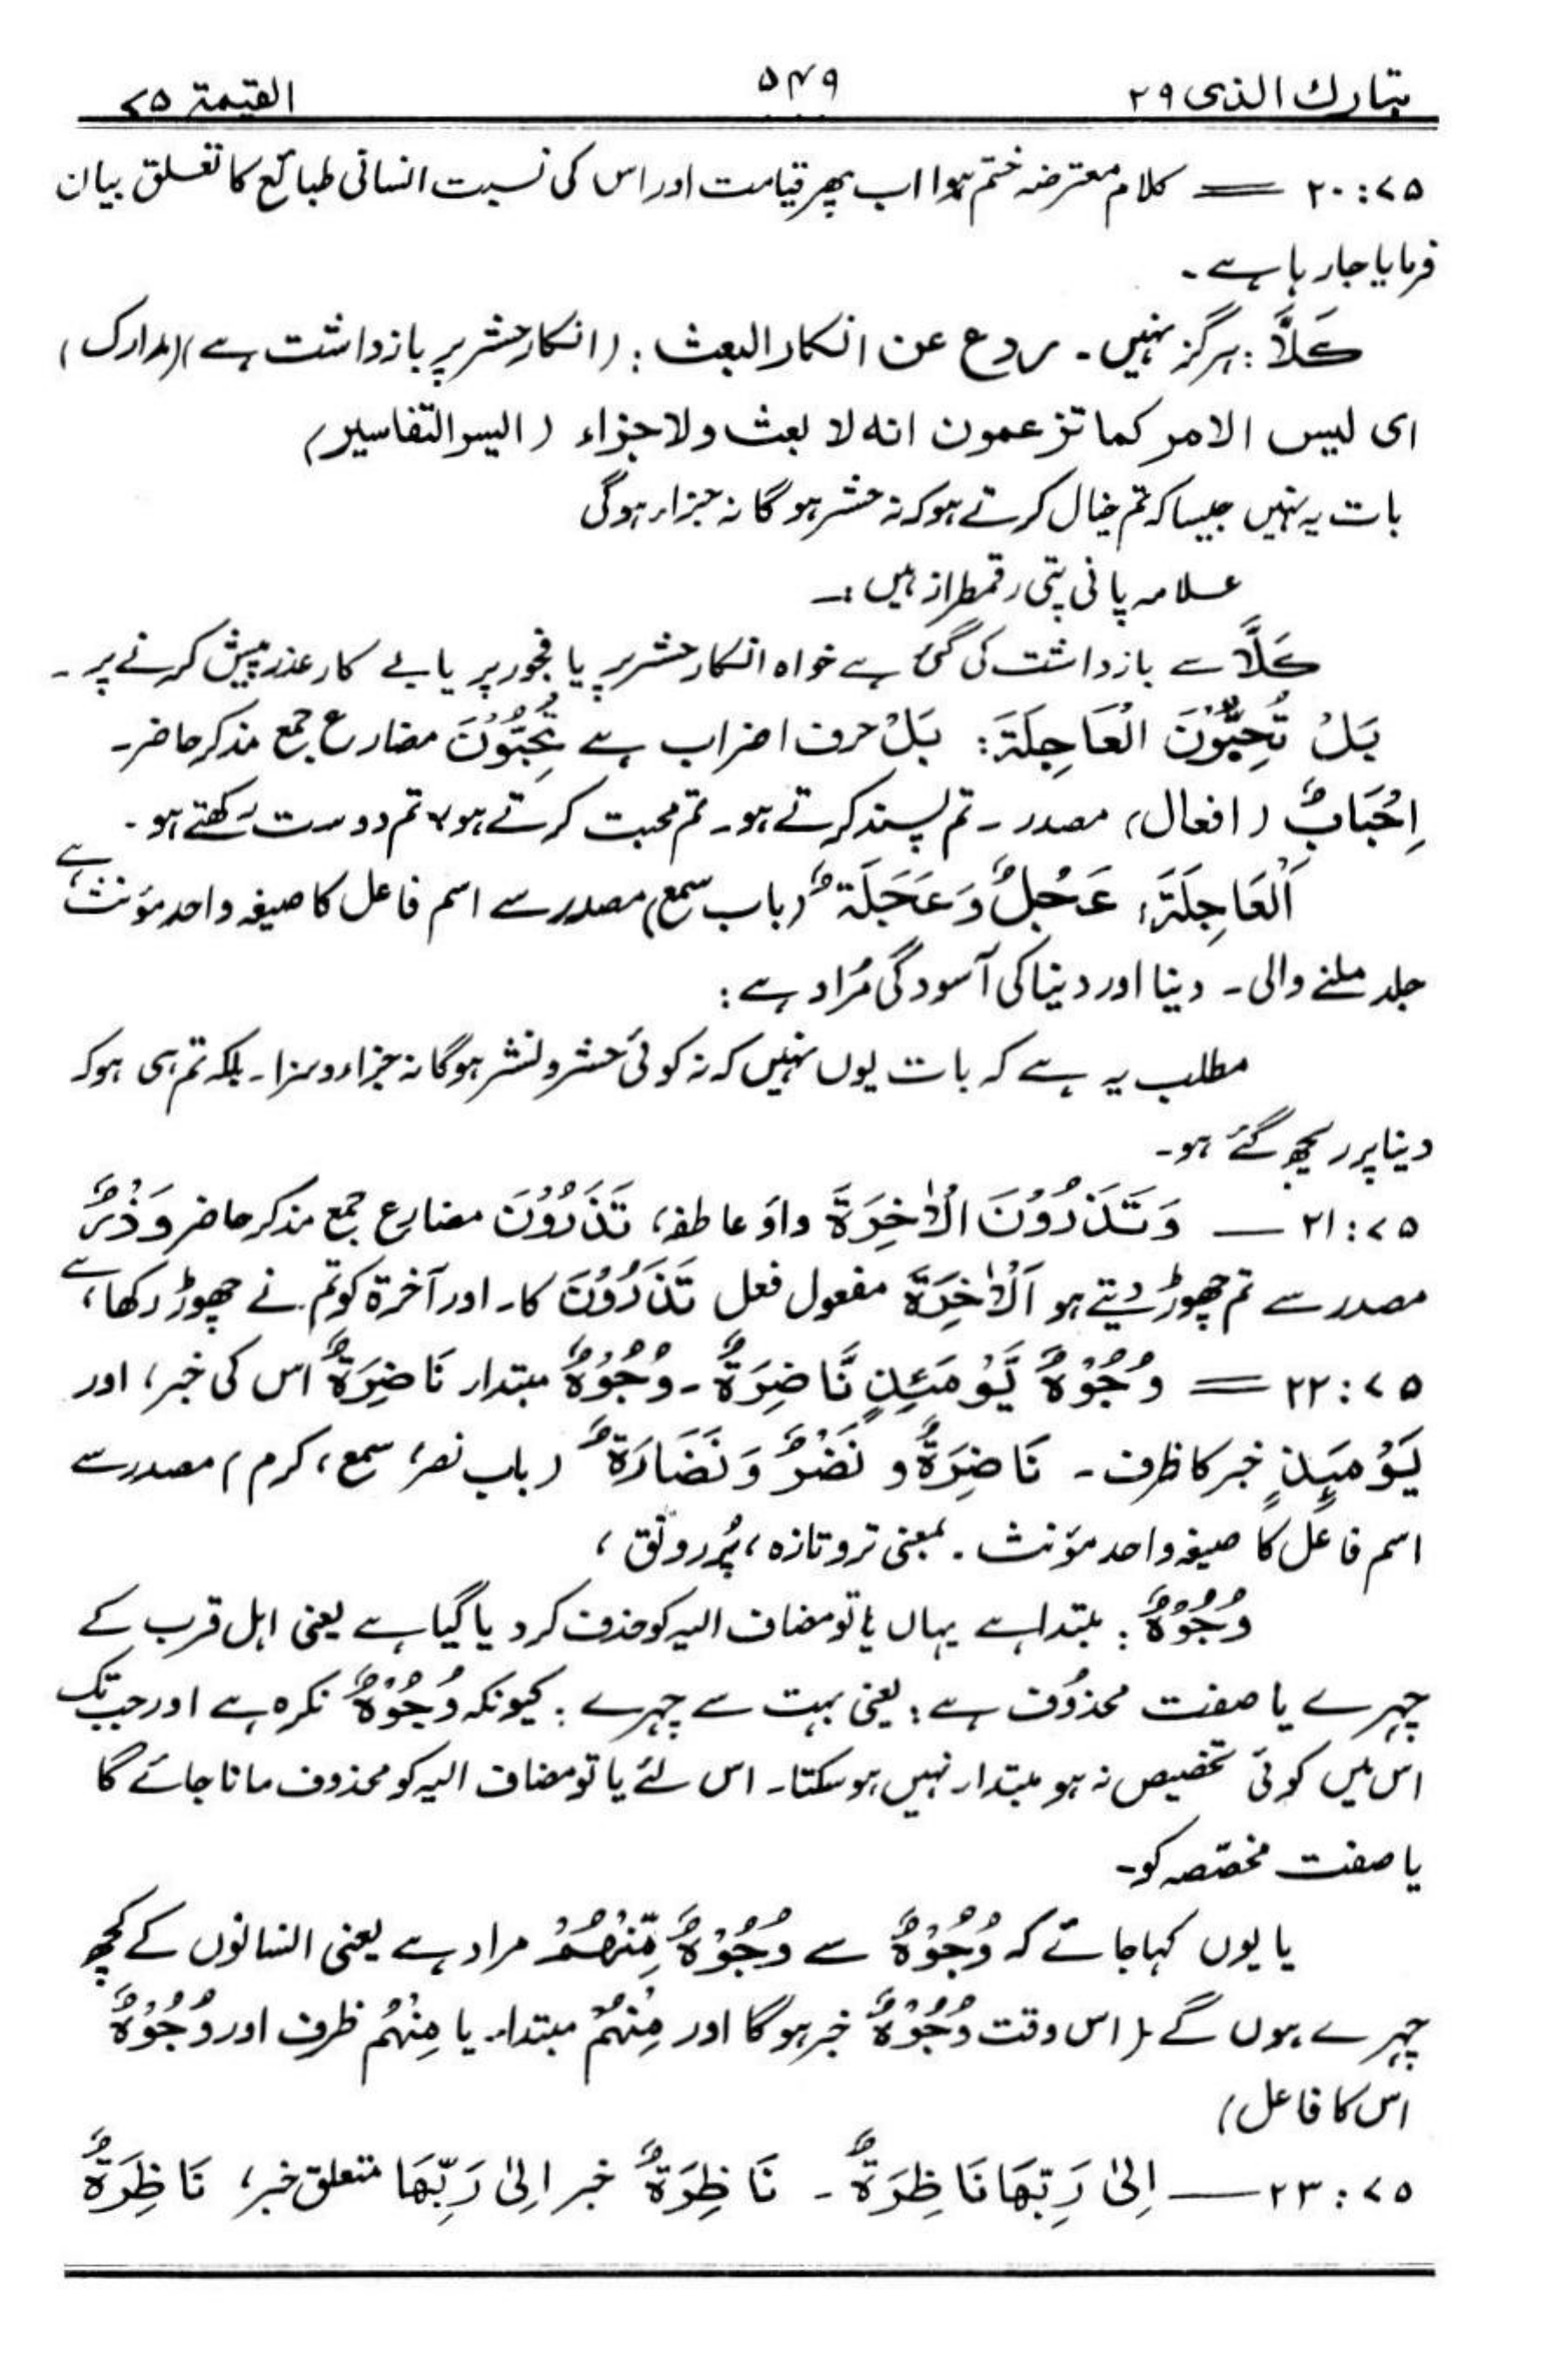 تبارك الذی ۲۹ ۵۴۹ القیٰمة ۷۵
۷۵: ۲۰ == کلام معترضہ ختم ہوا اب پھر قیامت اور اس کی نسبت انسانی طبائع کا تعلق بیان
فرمایا جا رہا ہے ۔
كَلَّا: ہرگز نہیں ۔ ردع عن انکار البعث: (انکار حشر پر بازداشت ہے) (مدارک)
ای لیس الامر کما تزعمون انه لا بعث ولا جزاء (ایسر التفاسیر)
بات یہ نہیں جیسا کہ تم خیال کرتے ہو کہ نہ حشر ہوگا نہ جزاء ہوگی
علامہ پانی پتی رقمطراز ہیں :۔
كَلَّا سے بازداشت کی گئی ہے خواہ انکار حشر پر یا فجور پر یا بے کار عذر پیش کرنے پر ۔
بَلْ تُحِبُّوْنَ الْعَاجِلَةَ: بَلْ حرف اضراب ہے تُحِبُّوْنَ مضارع جمع مذکر حاضر۔
اِحْبَابٌ (افعال) مصدر ۔ تم پسند کرتے ہو۔ تم محبت کرتے ہو، تم دوست رکھتے ہو ۔
اَلْعَاجِلَةَ: عَجْلٌ وَعَجَلَةٌ (باب سمع) مصدر سے اسم فاعل کا صیغہ واحد مؤنث ہے،
جلد ملنے والی ۔ دنیا اور دنیا کی آسودگی مُراد ہے :
مطلب یہ ہے کہ بات یوں نہیں کہ نہ کوئی حشر و نشر ہوگا نہ جزاء و سزا۔ بلکہ تم ہی ہو کہ
دنیا پر ریجھ گئے ہو۔
۷۵: ۲۱ — وَتَذَرُوْنَ الْاٰخِرَةَ واؤ عاطفہ، تَذَرُوْنَ مضارع جمع مذکر حاضر وَذْرٌ
مصدر سے تم چھوڑ دیتے ہو اَلْاٰخِرَةَ مفعول فعل تَذَرُوْنَ کا۔ اور آخرۃ کو تم نے چھوڑ رکھا ہے،
۷۵: ۲۲ == وُجُوْهٌ يَّوْمَئِذٍ نَّاضِرَةٌ ۔ وُجُوْهٌ مبتدار نَاضِرَةٌ اس کی خبر، اور
يَوْمَئِذٍ خبر کا ظرف ۔ نَاضِرَةٌ و نَضْرٌ وَ نَضَارَةٌ (باب نصر، سمع، کرم) مصدر سے
اسم فاعل کا صیغہ واحد مؤنث ۔ بمعنی تر و تازہ، پُر رونق،
وُجُوْهٌ: مبتدا ہے یہاں یا تو مضاف الیہ کو حذف کر دیا گیا ہے یعنی اہل قرب کے
چہرے یا صفت محذوف ہے: یعنی بہت سے چہرے: کیونکہ وُجُوْهٌ نکرہ ہے اور جب تک
اس میں کوئی تخصیص نہ ہو مبتدار نہیں ہو سکتا۔ اس لئے یا تو مضاف الیہ کو محذوف مانا جائے گا
یا صفت مخصّصہ کو۔
یا یوں کہا جائے کہ وُجُوْهٌ سے وُجُوْهٌ مِّنْهُمْ مراد ہے یعنی انسانوں کے کچھ
چہرے ہوں گے (اس وقت وُجُوْهٌ خبر ہوگا اور مِنْهُمْ مبتدا۔ یا مِنْهُم ظرف اور وُجُوْهٌ
اس کا فاعل)
۷۵: ۲۳ — اِلىٰ رَبِّهَا نَاظِرَةٌ ۔ نَاظِرَةٌ خبر اِلىٰ رَبِّهَا متعلق خبر، نَاظِرَةٌ